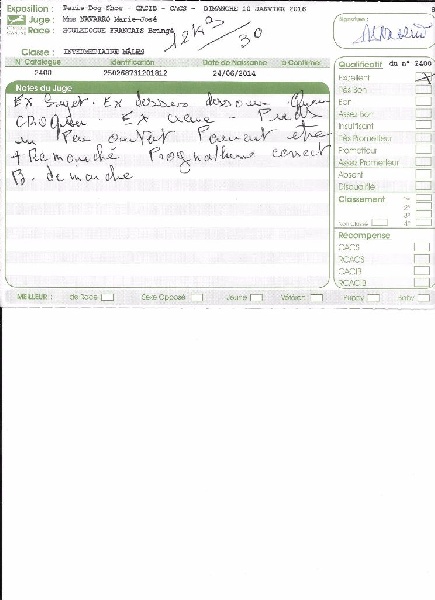 Exposition : Paris Dog Show - CACIB - CACS - DIMANCHE 10 JANVIER 2016
Juge : Mme NAVARRO Marie-José
Race : BOULEDOGUE FRANCAIS Bringé
12K
30
Signature :
Classe : INTERMEDIAIRE MÂLES
N° Catalogue Identification Date de Naissance à Confirmer
2400 250268731201812 24/06/2014
Notes du Juge
Ex Sujet. Ex dessus dessous
Ex crane - Pieds
un Peu ouvert Pourrait etre
+ Remanché Prognathisme correct
B. démarche
Qualificatif du n° 2400
Excellent
Très Bon
Bon
Assez Bon
Insuffisant
Très Prometteur
Prometteur
Assez Prometteur
Absent
Disqualifié
Classement
Non Classé
Récompense
CACS
RCACS
CACIB
RCACIB
MEILLEUR : de Race Sexe Opposé Jeune Vétéran Puppy Baby